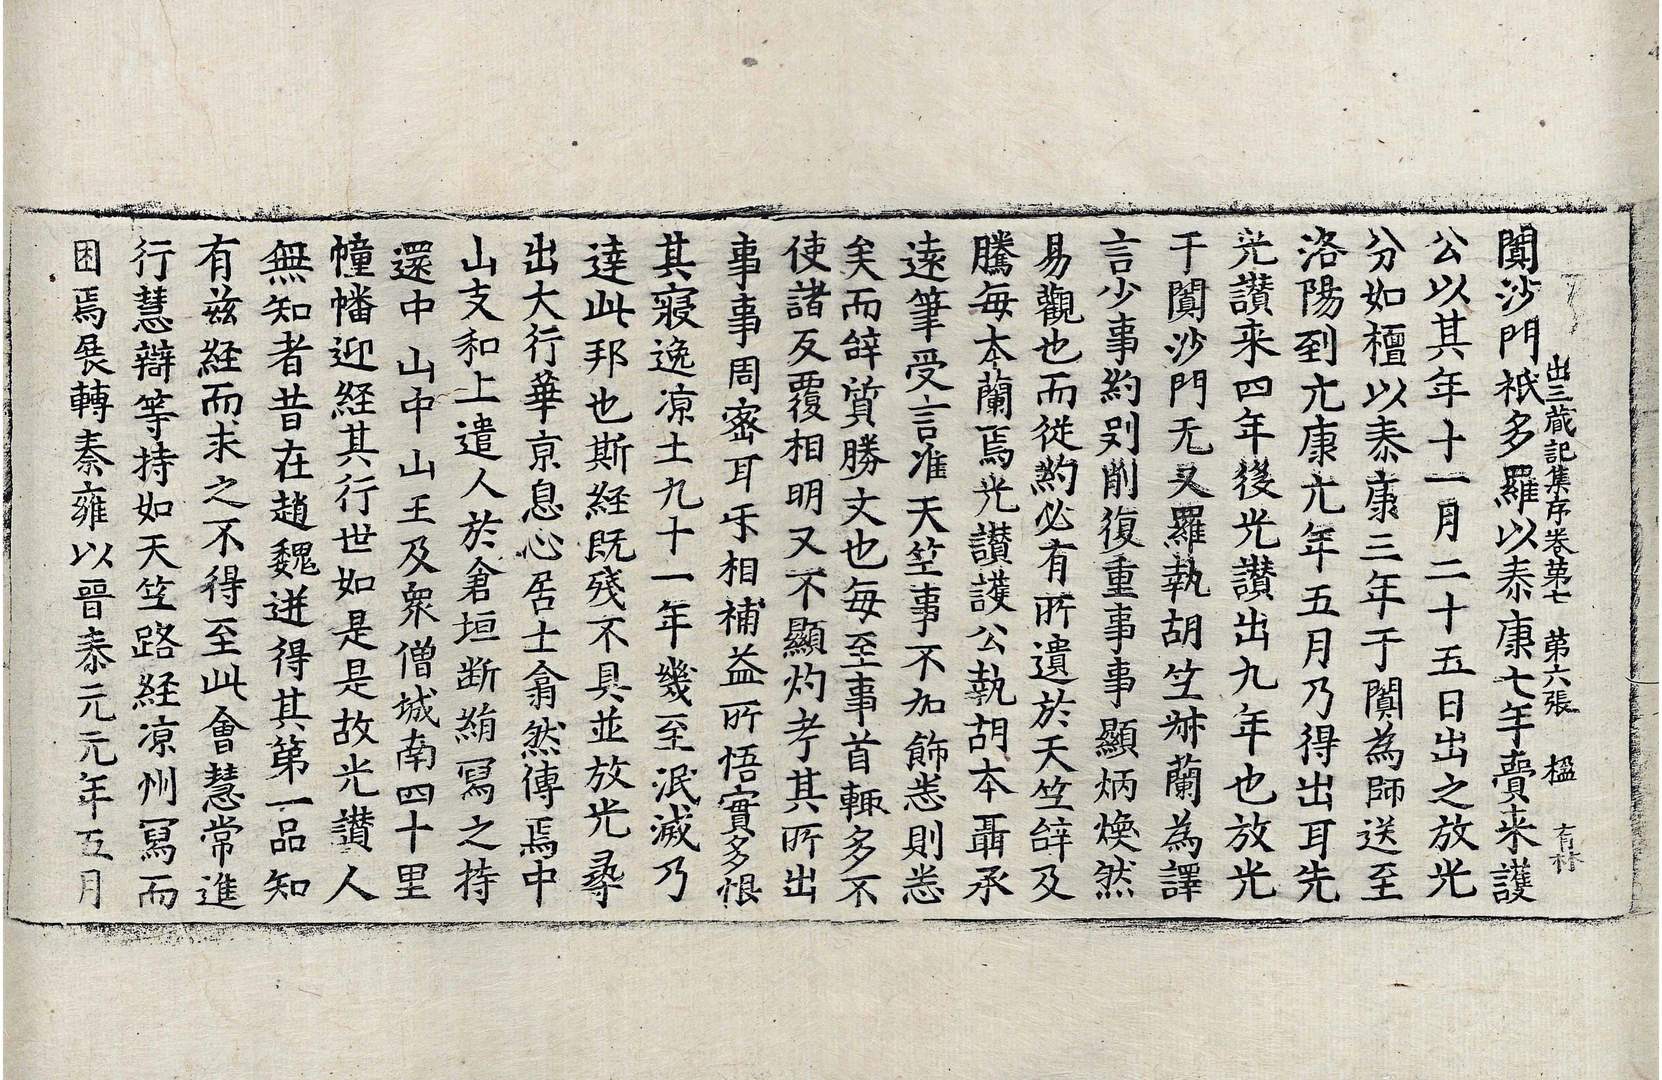 出三藏記集序卷第七 第六張 楹 有林
闐沙門祇多羅以泰康七年賷来護
公以其年十一月二十五日出之放光
分如檀以泰康三年于闐為師送至
洛陽到元康元年五月乃得出耳先
光讃来四年後光讃出九年也放光
于闐沙門无叉羅執胡竺𣂏蘭為譯
言少事約刪削復重事事顯炳煥然
易觀也而從約必有所遺於天竺辝及
騰每夲蘭焉光讃護公執胡夲聶承
遠筆受言准天竺事不加飾悉則悉
矣而辝質勝文也每至事首輙多不
使諸反覆相明又不顯灼考其所出
事事周密耳乐相補益所悟實多恨
其寢逸涼土九十一年幾至泯滅乃
達此邦也斯經既殘不具並放光㝷
出大行華京息心居士翕然傳焉中
山支和上遣人於倉垣断絹冩之持
還中山中山王及衆僧城南四十里
幢幡迎経其行世如是是故光讃人
無知者昔在趙魏迸得其第一品知
有茲経而求之不得至此會慧常進
行慧辯等持如天竺路経涼州冩而
因焉展轉秦雍以晉泰元元年五月